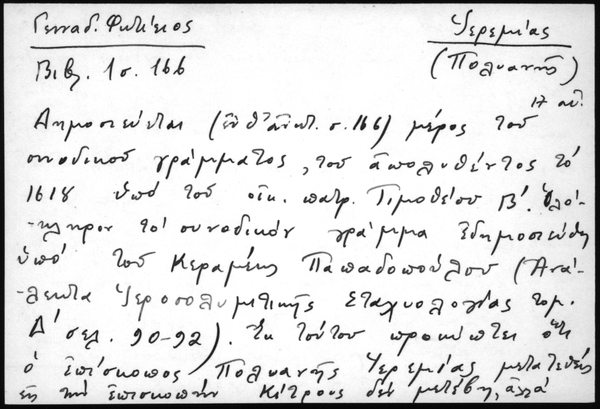 Γενναδ. Φωτίειος Ἱερεμίας
Βιβλ. 1 σ. 166 (Πολυανῆς)
17 αἰ.
Δημοσιεύεται (ἐν θ' ἀνωτ. σ. 166) μέρος τοῦ
συνοδικοῦ γράμματος, τοῦ ἀπολυθέντος τό
1618 ὑπό τοῦ οἰκ. πατρ. Τιμοθέου Β'. Ὁλό-
-κληρον τό συνοδικόν γράμμα ἐδημοσιεύθη
ὑπό τοῦ Κεραμέως Παπαδοπούλου (Ἀνά-
-λεκτα Ἱεροσολυμιτικῆς Σταχυολογίας τομ.
Δ' σελ. 90-92). Ἐκ τούτου προκύπτει ὅτι
ὁ ἐπίσκοπος Πολυανῆς Ἱερεμίας μετατεθείς
εἰς τήν ἐπισκοπήν Κίτρους δέν μετέβη, ἀλλά